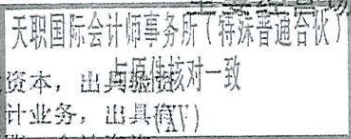 天职国际会计师事务所（特殊普通合伙）
与原件核对一致
资本，出具验资
计业务，出具有
(XV)